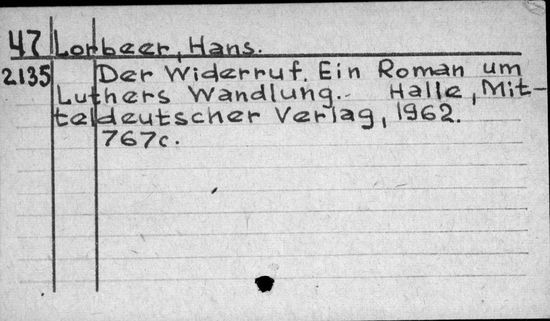 47 Lorbeer, Hans.
2135 Der Widerruf. Ein Roman um
Luthers Wandlung. Halle, Mit-
teldeutscher Verlag, 1962.
767c.